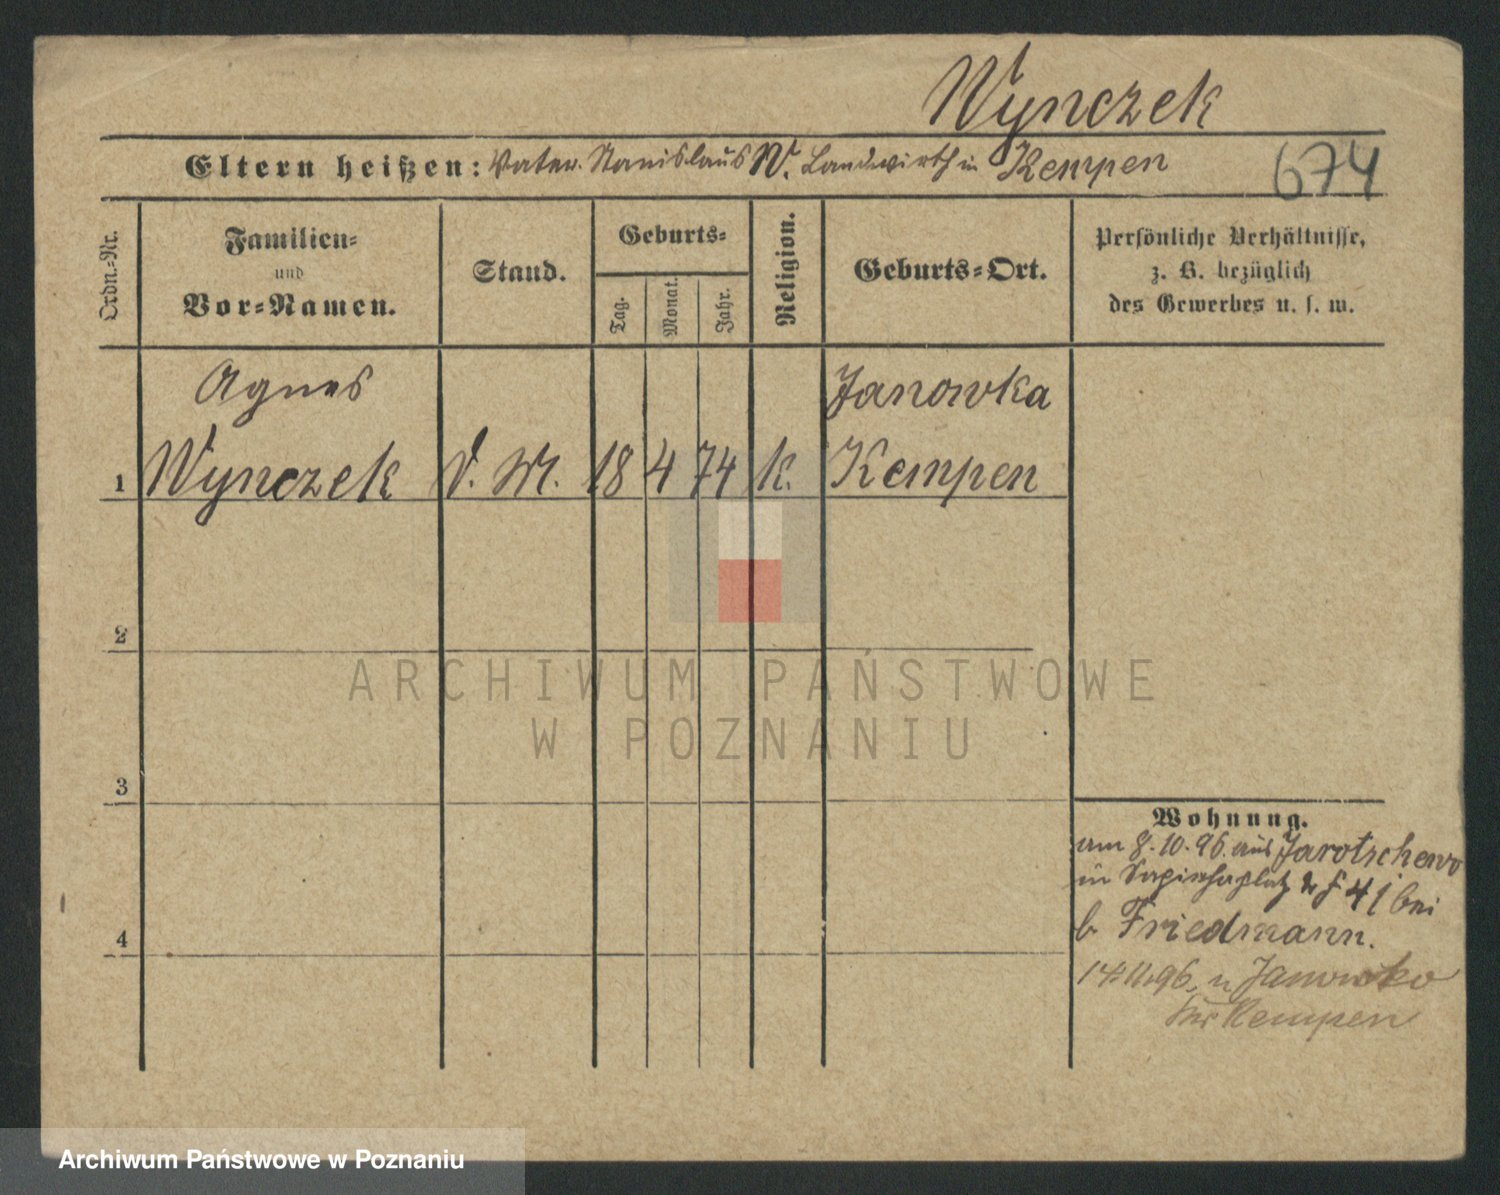 Wynczek
Eltern heißen: Vater Stanislaus W. Landwirth in Kempen
674
Ordn.-Nr.
Familien-
und
Vor-Namen.
Stand.
Geburts-
Tag.
Monat.
Jahr.
Religion.
Geburts-Ort.
Persönliche Verhältnisse,
z. B. bezüglich
des Gewerbes u. s. w.
Agnes
Janowka
1 Wynczek d. M. 18 4 74 k. Kempen
2
3
4
Wohnung.
am 8.10.96. aus Jarotschewo
in Sapiehaplatz 41 bei
b Friedmann.
96. n Janowko
Kempen
ARCHIWUM PAŃSTWOWE
W POZNANIU
Archiwum Państwowe w Poznaniu